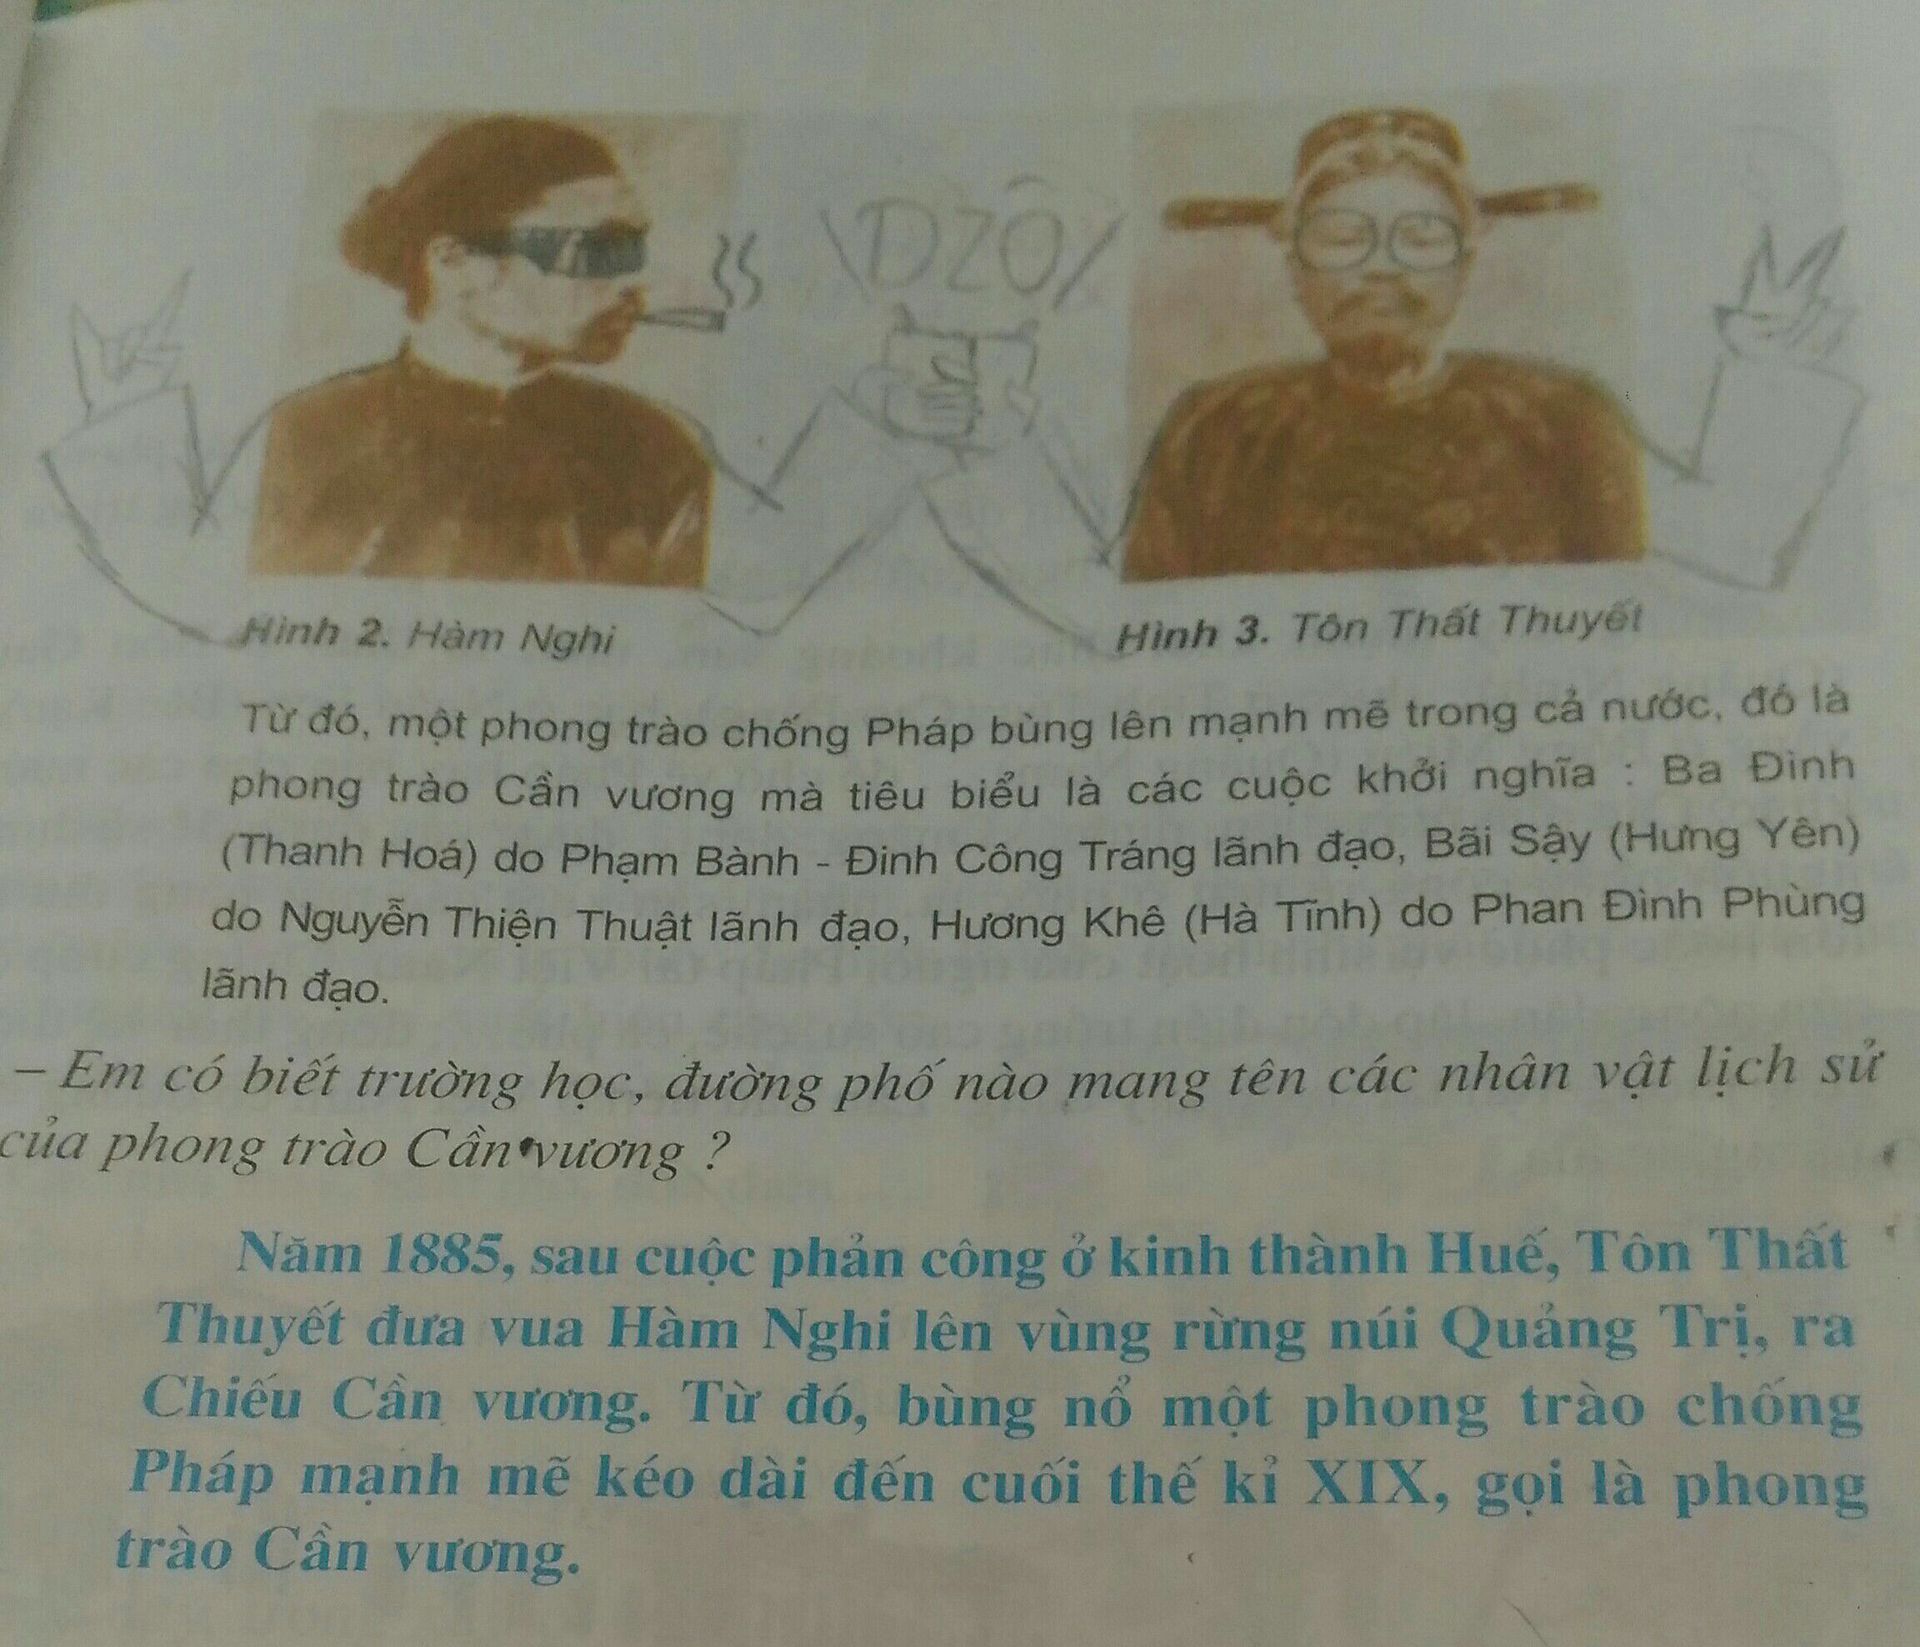 \DZÔ/
Hình 2. Hàm Nghi
Hình 3. Tôn Thất Thuyết
Từ đó, một phong trào chống Pháp bùng lên mạnh mẽ trong cả nước, đó là
phong trào Cần vương mà tiêu biểu là các cuộc khởi nghĩa : Ba Đình
(Thanh Hoá) do Phạm Bành - Đinh Công Tráng lãnh đạo, Bãi Sậy (Hưng Yên)
do Nguyễn Thiện Thuật lãnh đạo, Hương Khê (Hà Tĩnh) do Phan Đình Phùng
lãnh đạo.
– Em có biết trường học, đường phố nào mang tên các nhân vật lịch sử
của phong trào Cần vương ?
Năm 1885, sau cuộc phản công ở kinh thành Huế, Tôn Thất
Thuyết đưa vua Hàm Nghi lên vùng rừng núi Quảng Trị, ra
Chiếu Cần vương. Từ đó, bùng nổ một phong trào chống
Pháp mạnh mẽ kéo dài đến cuối thế kỉ XIX, gọi là phong
trào Cần vương.